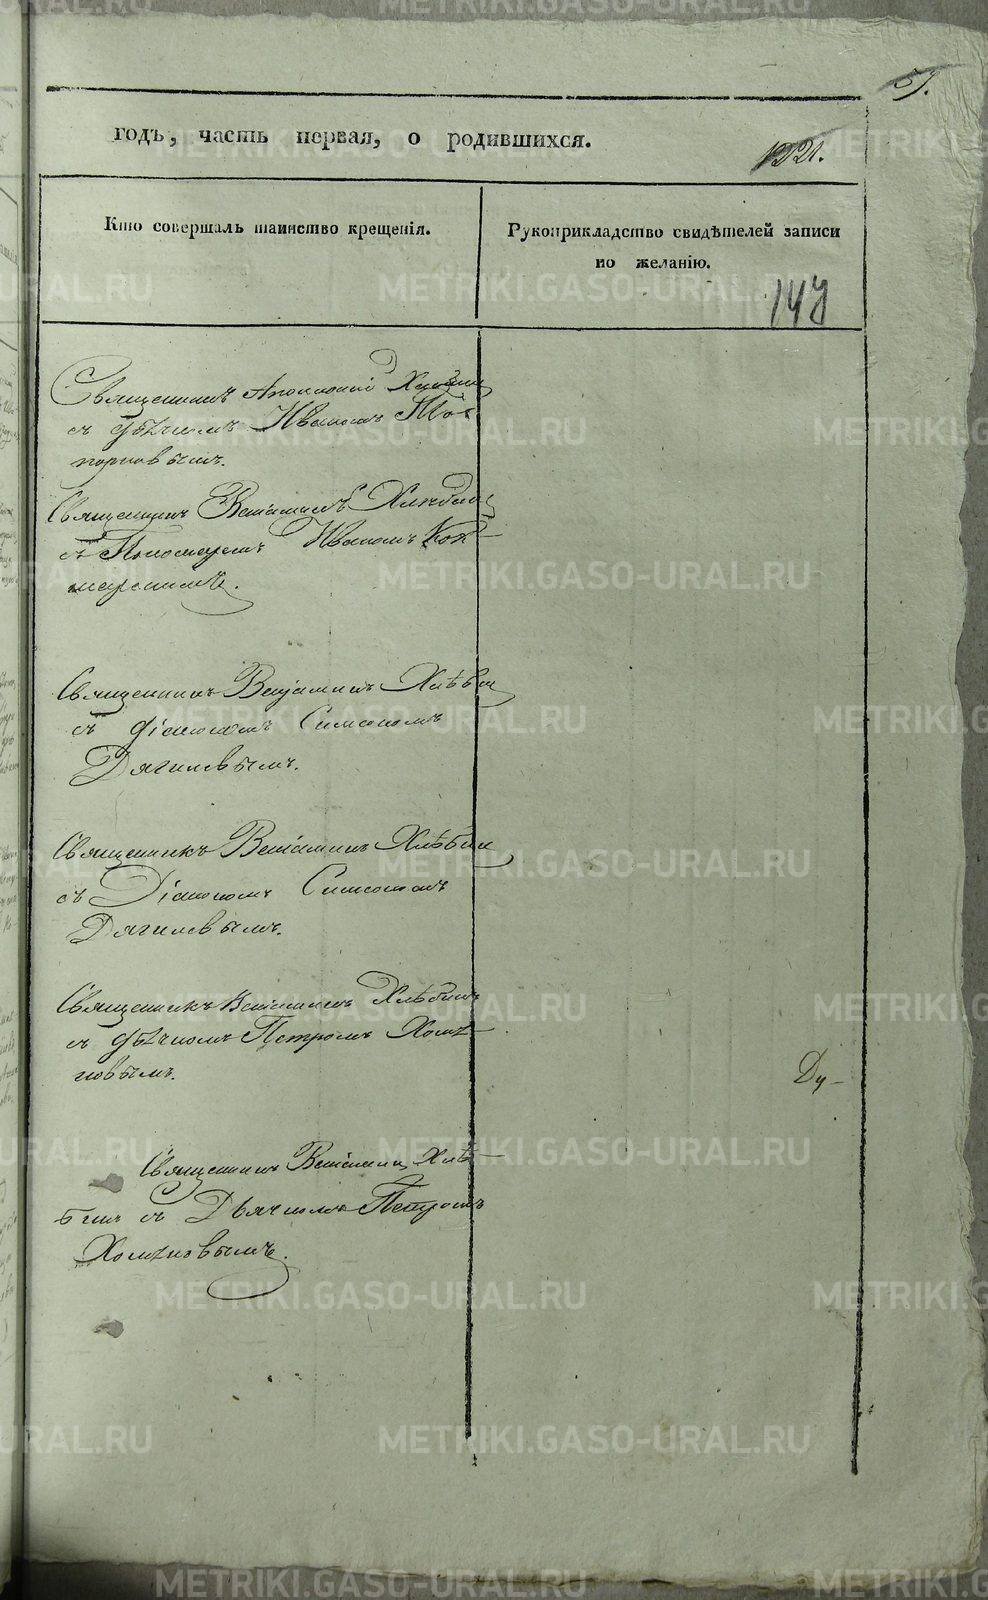 51.
годъ, часть первая, о родившихся.
1221.
Кто совершалъ таинство крещенія.
Рукоприкладство свидѣтелей записи
по желанію.
147
Священникъ
съ дьячкомъ Иваномъ То-
порковымъ.
Священникъ Веніаминъ Хлѣбин
съ Пономаремъ Иваномъ
Священникъ Веніаминъ Хлѣбин
съ діакономъ Симеономъ
Дягилевымъ.
Священникъ Веніаминъ Хлѣбин
съ Діакономъ Симеономъ
Дягилевымъ.
Священникъ Веніаминъ Хлѣбинъ
съ дьячкомъ Петромъ Хомя-
ковымъ.
Ду-
Священникъ Веніаминъ Хлѣ-
бинъ съ Дьячкомъ Петромъ
Хомяковымъ.
METRIKI.GASO-URAL.RU